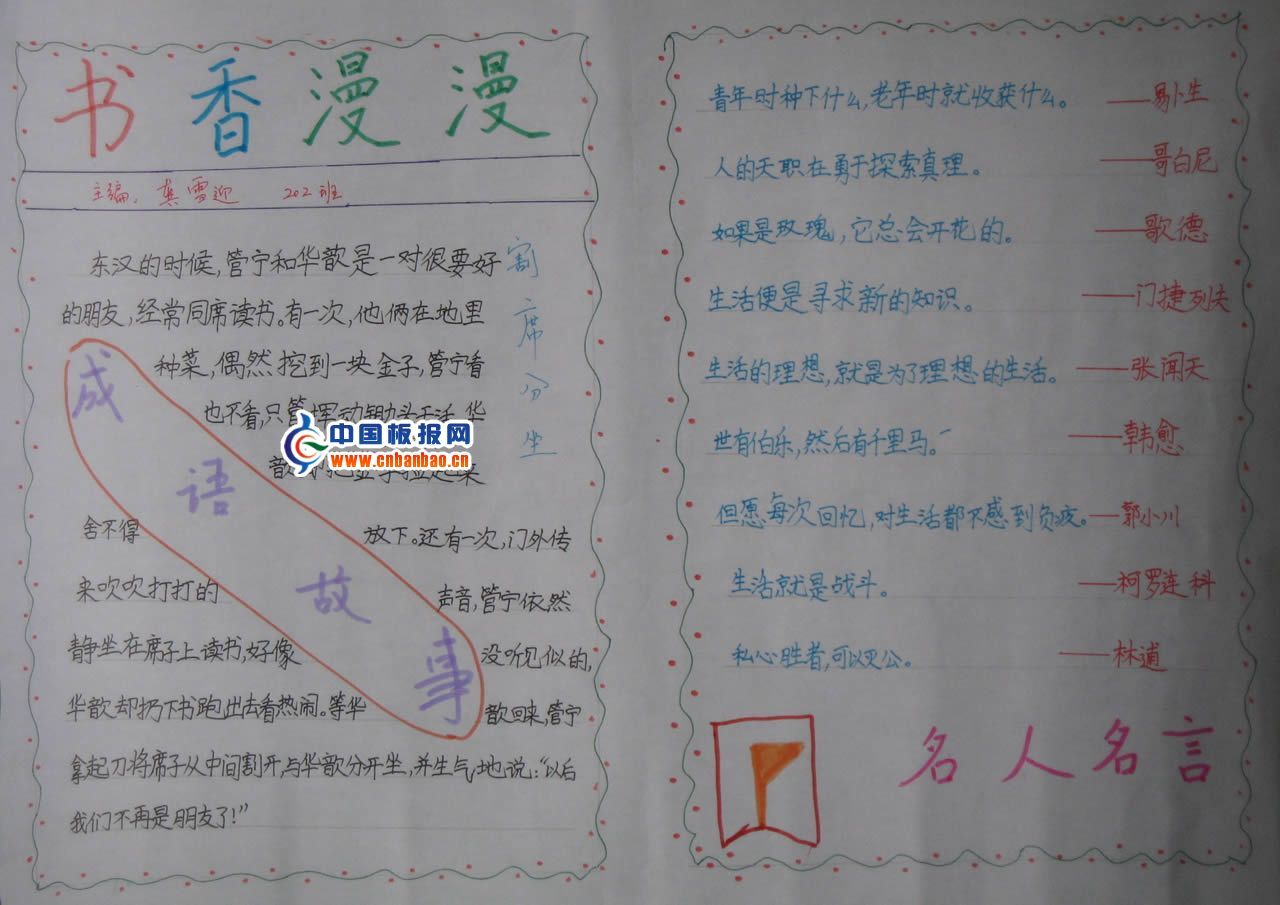 书香漫漫
主编：龚雪迎 202班
割席分坐
东汉的时候，管宁和华歆是一对很要好
的朋友，经常同席读书。有一次，他俩在地里
种菜，偶然挖到一块金子，管宁看
也不看，只管挥动锄头干活，华
歆
舍不得 放下。还有一次，门外传
来吹吹打打的 声音，管宁依然
静坐在席子上读书，好像 没听见似的，
华歆却扔下书跑出去看热闹。等华 歆回来，管宁
拿起刀将席子从中间割开，与华歆分开坐，并生气地说：“以后
我们不再是朋友了！”
成语故事
中国板报网
www.cnbanbao.cn
青年时种下什么，老年时就收获什么。 ——易卜生
人的天职在勇于探索真理。 ——哥白尼
如果是玫瑰，它总会开花的。 ——歌德
生活便是寻求新的知识。 ——门捷列夫
生活的理想，就是为了理想的生活。 ——张闻天
世有伯乐，然后有千里马。 ——韩愈
但愿每次回忆，对生活都不感到负疚。 —郭小川
生活就是战斗。 ——柯罗连科
私心胜者，可以灭公。 ——林逋
名人名言